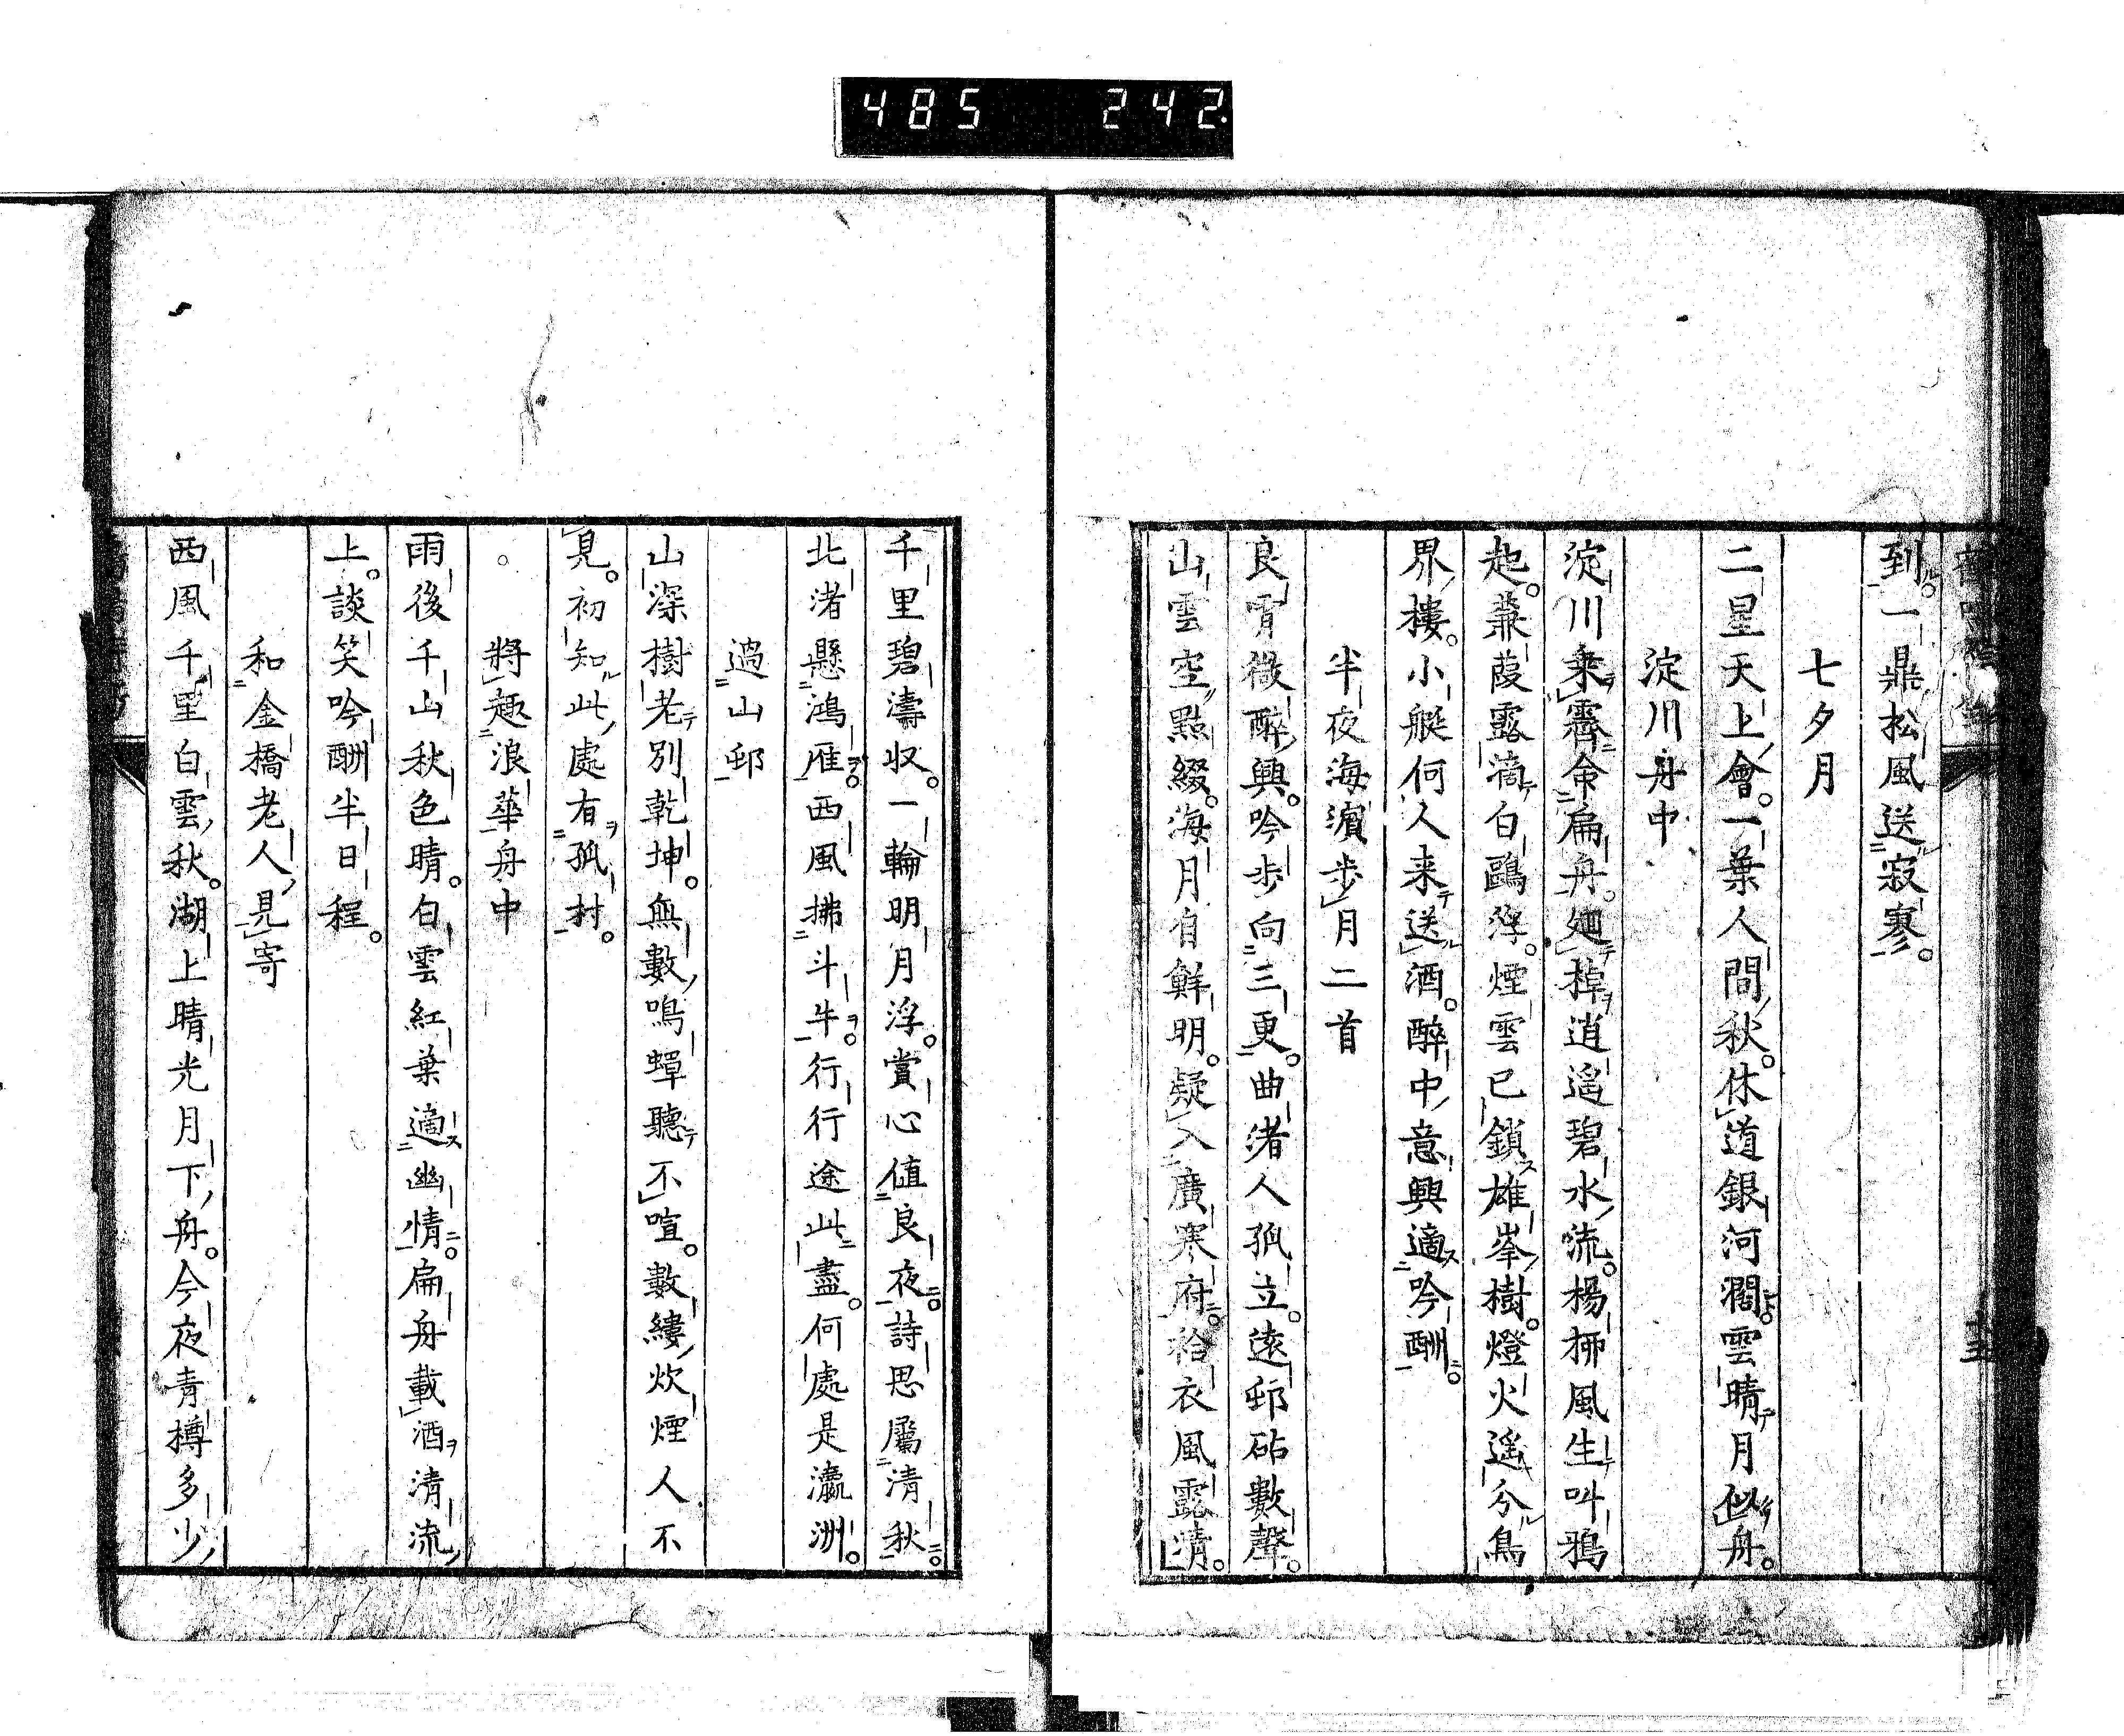 485 242
到。一鼎松風送寂寥。
七夕月
二星天上會。一葉人間秋。休道銀河濶。雲晴月似舟。
淀川舟中
淀川乗霽命扁舟。廻棹逍遥碧水流。楊栁風生叫鴉
起。蒹葭露滴白鷗浮。煙雲已鎖雄峯樹。燈火遥分鳥
界樓。小艇何人来送酒。醉中意興適吟酬。
半夜海濵歩月二首
良宵微醉興。吟歩向三更。曲渚人孤立。遠邨砧數聲。
山雲空點綴。海月自鮮明。疑入廣寒府。袷衣風露清。
千里碧濤収。一輪明月浮。賞心値良夜。詩思屬清秋。
北渚懸鴻雁。西風拂斗牛。行行途此盡。何處是瀛洲。
過山邨
山深樹老別乾坤。無數鳴蟬聽不喧。數縷炊煙人不
見。初知此處有孤村。
將趣浪華舟中
雨後千山秋色晴。白雲紅葉適幽情。扁舟載酒清流
上。談笑吟酬半日程。
和金橋老人見寄
西風千里白雲秋。湖上晴光月下舟。今夜青樽多少